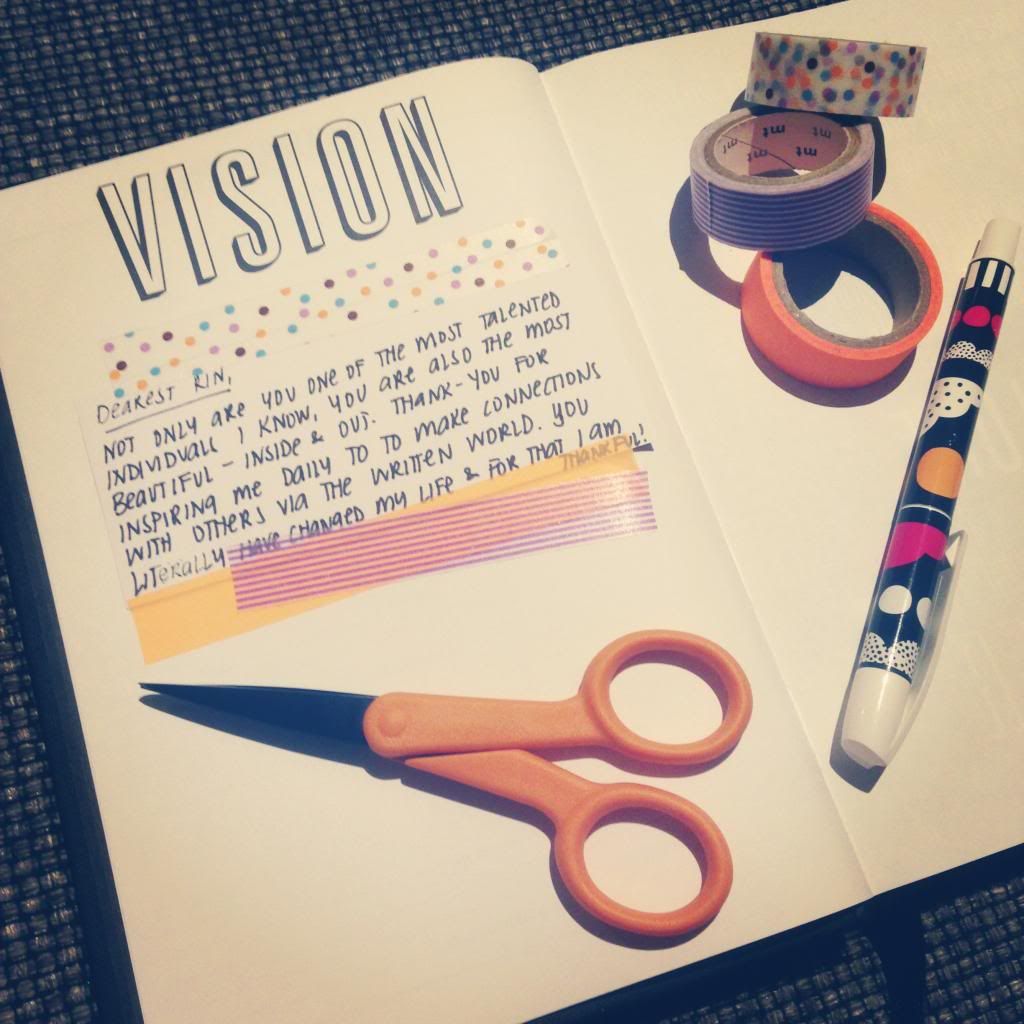 VISION
DEAREST RIN,
NOT ONLY ARE YOU ONE OF THE MOST TALENTED
INDIVIDUALS I KNOW, YOU ARE ALSO THE MOST
BEAUTIFUL - INSIDE & OUT. THANK-YOU FOR
INSPIRING ME DAILY TO TO MAKE CONNECTIONS
WITH OTHERS VIA THE WRITTEN WORLD. YOU
LITERALLY HAVE CHANGED MY LIFE & FOR THAT I AM
THANKFUL!
mt
mt
mt
mt
mt